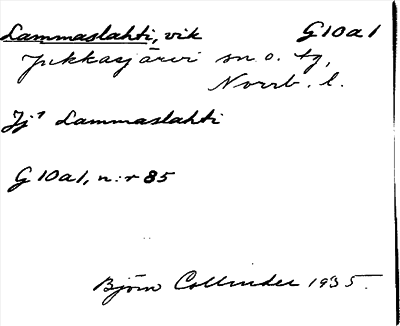 Lammaslahti, vik G10a1
Jukkasjärvi sn o. tg,
Norrb. l.
Jj⁹ Lammaslahti
G 10a1, n:r 85
Björn Collinder 1935.